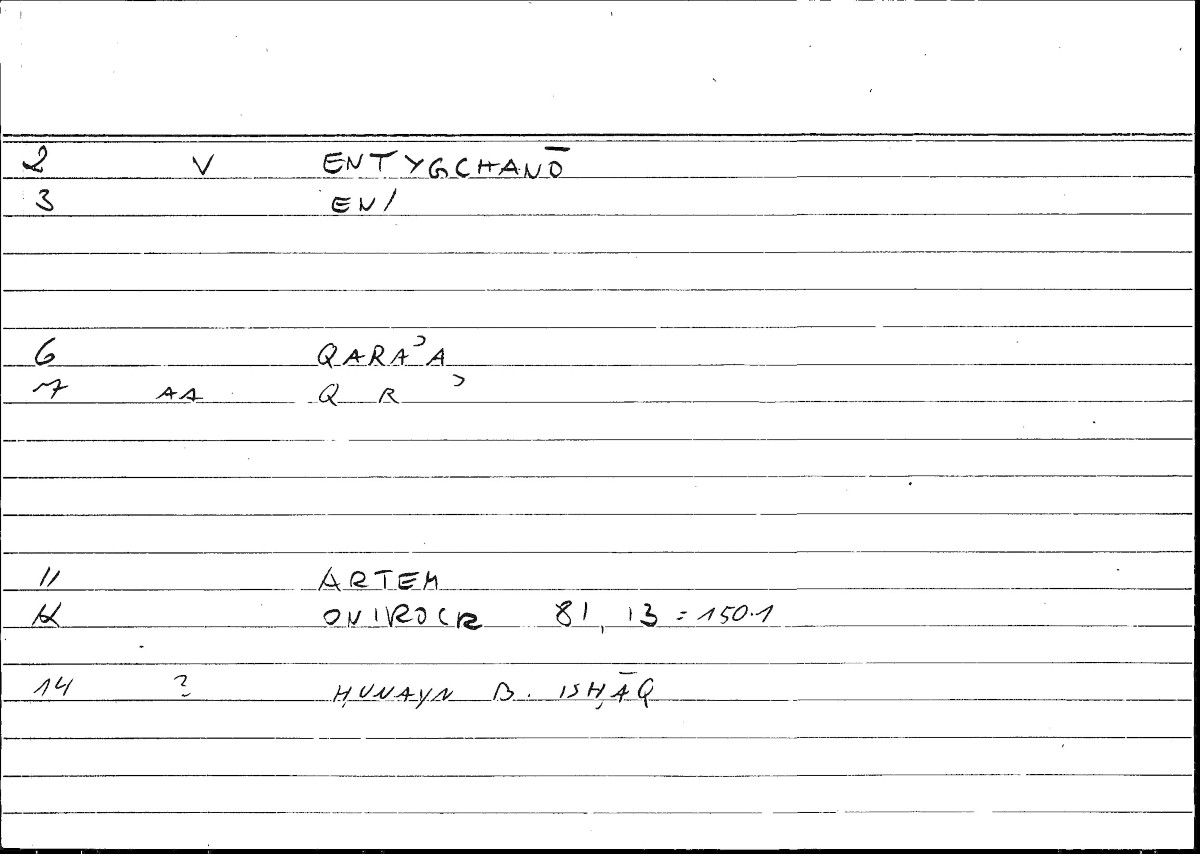 2 V ENTYGCHANŌ
3 EN/
6 QARAʾA
7 AA Q R ʾ
11 ARTEM
12 ONIROCR 81, 13 = 150.1
14 ? ḤUNAYN B. ISḤĀQ